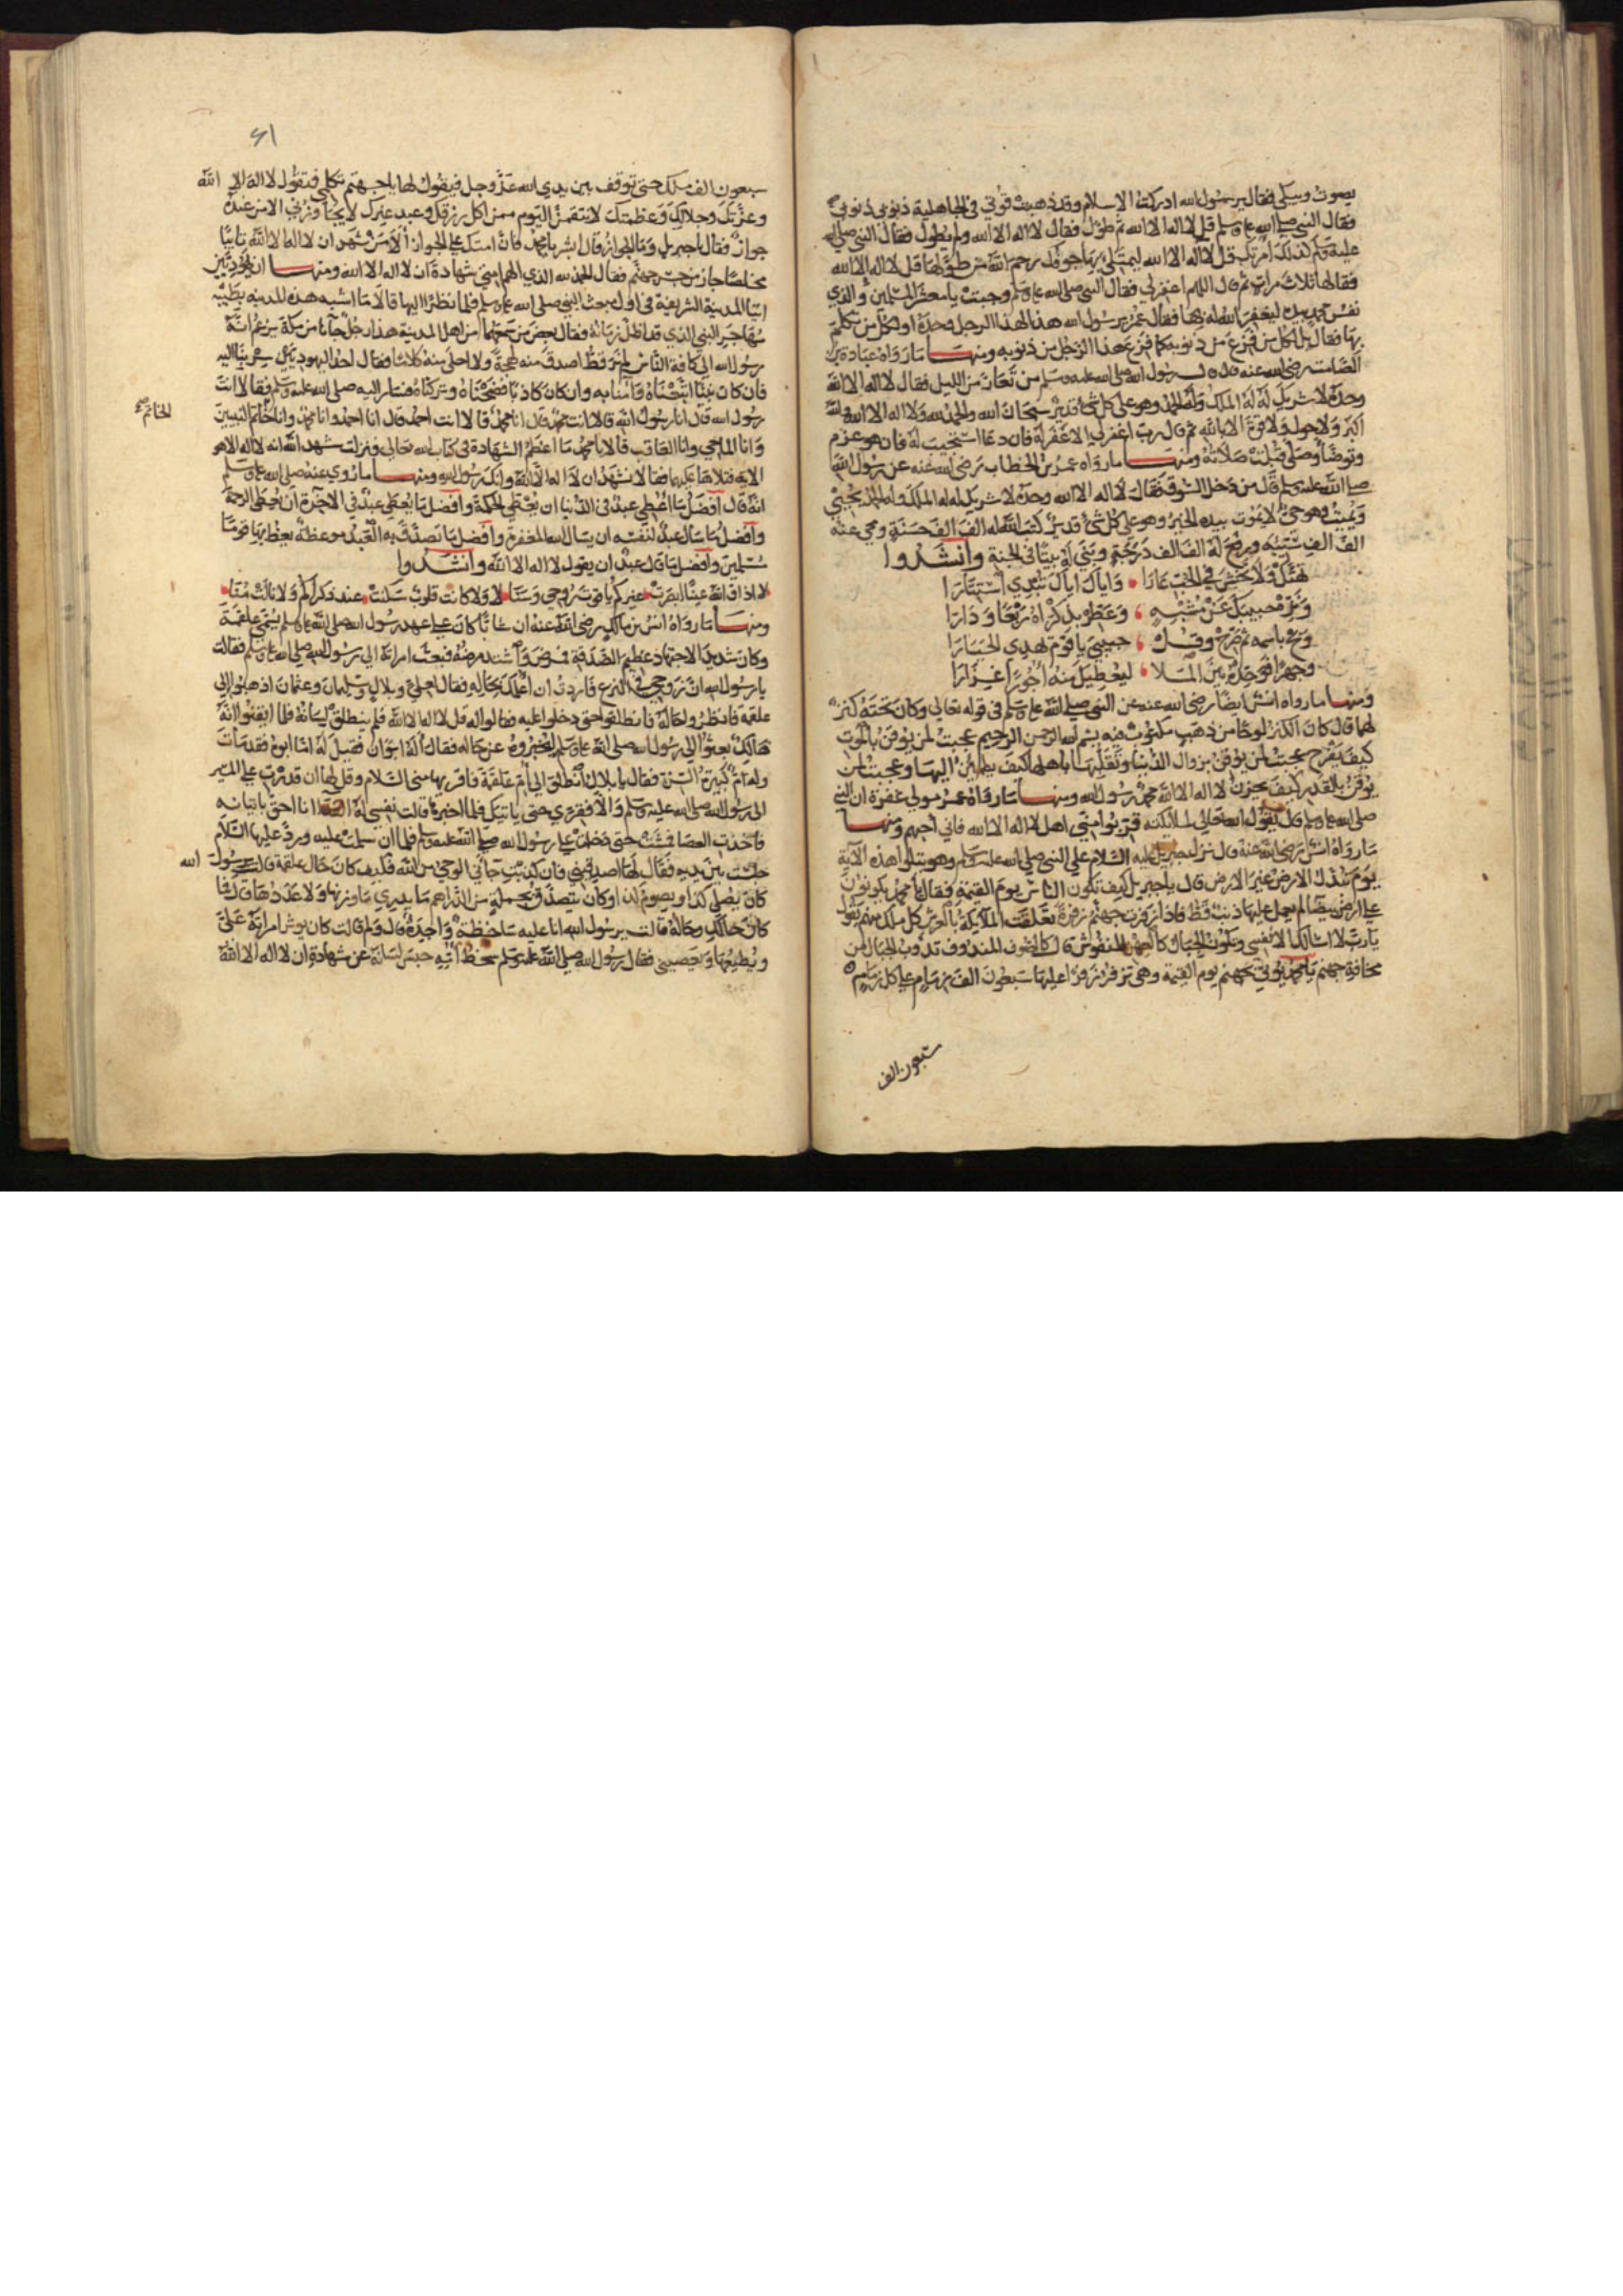 بصوت ويبكي فقال يرسول الله ادركت الاسلام وقد ذهبت قوتي في الجاهلية ذنوبي ذنوبي
فقال النبي صلى الله عليه وسلم قل لا اله الا الله ثم طول فقال لا اله الا الله ولم يطول فقال النبي صلى الله
عليه وسلم كذلك امرتك قل لا اله الا الله ليمتلئ بها جوفك رحم الله من طولها قل لا اله الا الله
فقالها ثلاث مرات ثم قال اللهم اغفر لي فقال النبي صلى الله عليه وسلم وجبت يا معشر المسلمين والذي
نفس محمد بيده ليغفر الله له بها فقال عمر يرسول الله هذا لهذا الرجل وحده او لكل من تكلم
بها فقال بل لكل من فزع من ذنوبه كما فزع هذا الرجل من ذنوبه ومنها ما رواه عبادة بن
الصامت رضي الله عنه قال قال رسول الله صلى الله عليه وسلم من تعار من الليل فقال لا اله الا الله
وحده لا شريك له له الملك وله الحمد وهو على كل شئ قدير سبحان الله والحمد لله ولا اله الا الله والله
اكبر ولا حول ولا قوة الا بالله ثم قال رب اغفر لي الا غفر له فان دعا استجيب له فان هو عزم
وتوضأ وصلى قبلت صلاته ومنها ما رواه عمر بن الخطاب رضي الله عنه عن رسول الله
صلى الله عليه وسلم قال من دخل السوق فقال لا اله الا الله وحده لا شريك له له الملك وله الحمد يحيي
ويميت وهو حي لا يموت بيده الخير وهو على كل شئ قدير كتب الله له الف الف حسنة ومحي عنه
الف الف سيئة ورفع له الف الف درجة وبني له بيتا في الجنة وانشدوا
تهتك ولا تخش في الحب عارا واياك اياك تبدي استتارا
ونزه حبيبك عن مشبه وعطر بذكراه ربعا ودارا
ونح باسمه ثم صرح وقل حبيبي يا قوم تهدي الحيارا
وجهرا فوحده بين الملا ليعطيك منه اجورا غزارا
ومنها ما رواه انس ايضا رضي الله عنه عن النبي صلى الله عليه وسلم في قوله تعالى وكان تحته كنز
لهما قال كان الكنز لوحا من ذهب مكتوب فيه بسم الله الرحمن الرحيم عجبت لمن يوقن بالموت
كيف يفرح عجبت لمن يوقن بزوال الدنيا وتقلبها باهلها كيف يطمئن اليها وعجبت لمن
يوقن بالقدر كيف يحزن لا اله الا الله محمد رسول الله ومنها ما رواه عمر مولى غفرة ان النبي
صلى الله عليه وسلم قال يقول الله تعالى لملائكته قربوا مني اهل لا اله الا الله فاني احبهم ومنها
ما رواه انس رضي الله عنه قال نزل جبريل عليه السلام على النبي صلى الله عليه وسلم وهو يتلو هذه الآية
يوم تبدل الارض غير الارض قال يا جبريل كيف تكون الناس يوم القيمة فقال يا محمد يكونون
على ارض بيضا لم يعمل عليها ذنب قط فاذا زفرت جهنم زفرة تعلقت الملايكة بالعرش كل ملك منهم يقول
يا رب لا اسالك الا نفسي وتكون الجبال كالعهن المنفوش قال كالصوف المندوف تذوب الجبال من
مخافة جهنم يا محمد يؤتي بجهنم يوم القيمة وهي تزفر زفرا عليها سبعون الف زمام على كل زمام
سبعون الف
٤١
سبعون الف ملك حتى توقف بين يدي الله عز وجل فيقول لها يا جهنم تكلمي فتقول لا اله الا الله
وعزتك وجلالك وعظمتك لانتقمن اليوم ممن اكل رزقك وعبد غيرك لا يجاوزني الا من عنده
جواز فقال يا جبريل وما الجواز قال ابشر يا محمد فان امتك على الجواز ألا من شهد ان لا اله الا الله تائبا
مخلصا جاز من جسر جهنم فقال الحمد لله الذي الهم امتي شهادة ان لا اله الا الله ومنها ان يهوديين
اتيا المدينة الشريفة في اول مبعث النبي صلى الله عليه وسلم فلما نظرا اليها قالا ما اشبه هذه المدينة بطيبة
مهاجر النبي الذي قد اظل زمانه فقال بعض من سمعهما من اهل المدينة هذا رجل جانا من مكة يزعم انه
رسول الله الى كافة الناس لم نر قط اصدق منه لهجة ولا احلى منه كلاما فقال احد اليهوديين سر بنا اليه
فان كان نبيا اتبعناه وآمنا به وان كان كاذبا فضحناه وتركناه فسارا اليه صلى الله عليه وسلم فقالا انت
رسول الله قال انا رسول الله قالا انت محمد قال انا محمد قالا انت احمد قال انا احمد وانا محمد وانا خاتم النبيين
الخاتم صح
وانا الماحي وانا العاقب قالا يا محمد ما اعظم الشهادة في كتاب الله تعالى فنزلت شهد الله انه لا اله الا هو
الاية فتلاها عليهما فقالا نشهد ان لا اله الا الله وانك رسول الله ومنها ما روي عنه صلى الله عليه وسلم
انه قال افضل ما اعطي عبد في الدنيا ان يعطي الحكمة وافضل ما يعطى عبد في الاخرة ان يعطى الرحمة
وافضل ما سال عبد لنفسه ان يسال الله المغفرة وافضل ما تصدق به العبد موعظة يعظ بها قوما
مسلمين وافضل ما قال عبد ان يقول لا اله الا الله وانشدوا
لا اذاق الله عينا ابصرت غيركم يا قوت روحي وسنا لا ولا كانت قلوب سكنت عند ذكراكم ولا نالت منا
ومنها ما رواه انس بن مالك رضي الله عنه ان شابا كان على عهد رسول الله صلى الله عليه وسلم يسمى علقمة
وكان شديد الاجتهاد عظيم الصدقة فمرض واشتد مرضه فبعث امراته الى رسول الله صلى الله عليه وسلم فقالت
يا رسول الله ان زوجي في النزع فاردت ان اعلمك بحاله فقال لعلي وبلال وسلمان وعثمان اذهبوا الى
علقمة فانظروا حاله فانطلقوا حتى دخلوا عليه فقالوا له قل لا اله الا الله فلم ينطلق لسانه فلما ايقنوا انه
هالك بعثوا الى رسول الله صلى الله عليه وسلم ليخبروه عن حاله فقال أله ابوان فقيل له اما ابوه فقد مات
وله ام كبيرة السن فقال يا بلال انطلق الى ام علقمة فاقريها مني السلام وقل لها ان قدرت على المسير
الى رسول الله صلى الله عليه وسلم والا فقري حتى ياتيك فلما اخبرها قالت نفسي له الفدا انا احق باتيانه
فاخذت العصا فمشت حتى دخلت على رسول الله صلى الله عليه وسلم فلما ان سلمت عليه ورد عليها السلام
جلست بين يديه فقال لها اصدقيني فان كذبت جآني الوحي من الله فكيف كان حال علقمة قالت يرسول الله
كان يصلي كذا ويصوم كذا وكان يتصدق بجملة من الدراهم ما يدري ما وزنها ولا عددها قال فما
كان حالك وحاله قالت يرسول الله انا عليه ساخطة واجدة قال ولم قالت كان يوثر امراته علي
ويطيعها ويعصيني فقال رسول الله صلى الله عليه وسلم سخط امه حبس لسانه عن شهادة ان لا اله الا الله